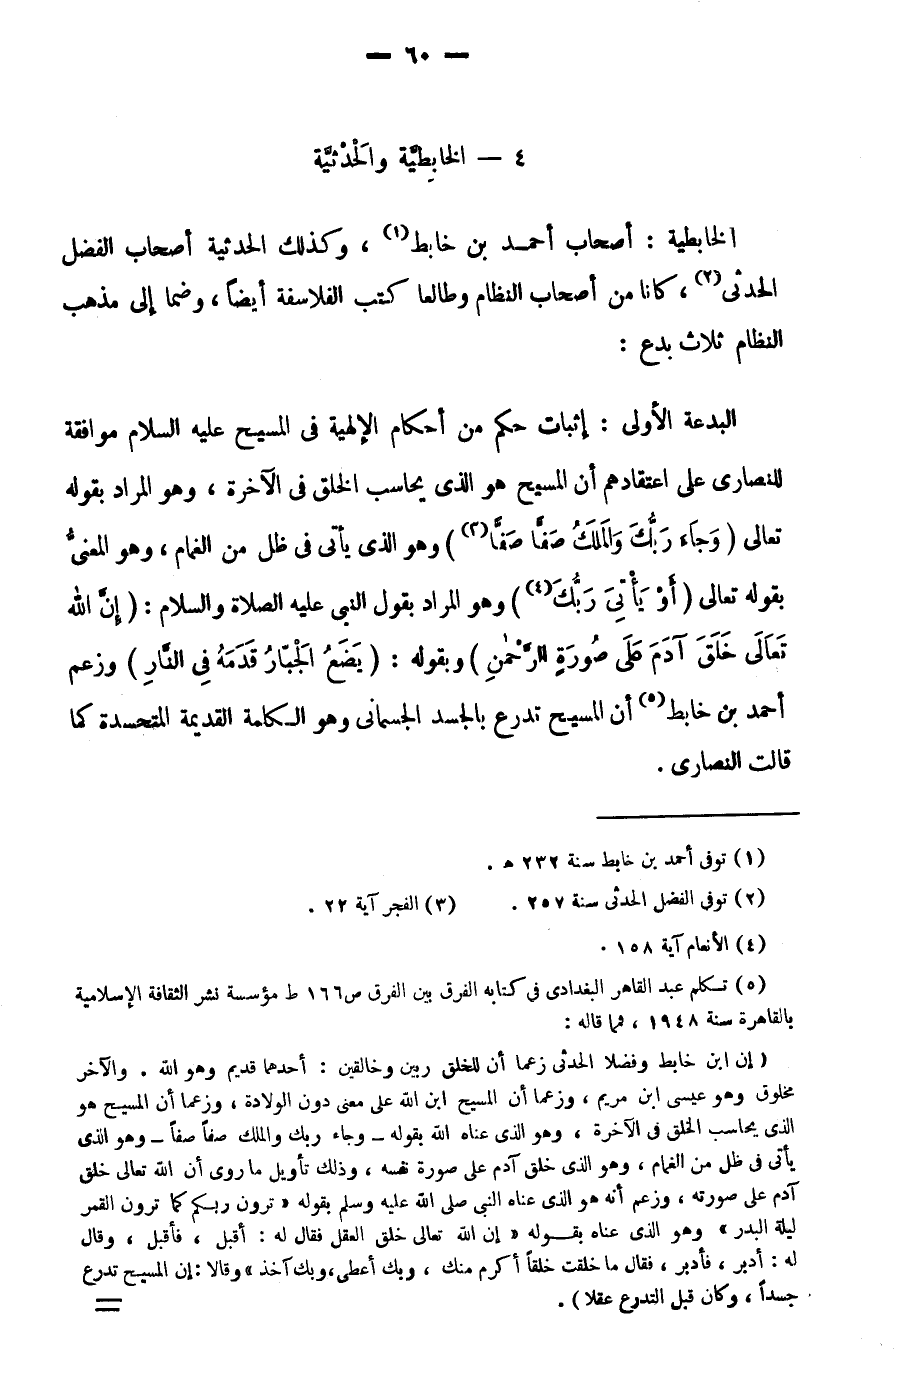 — ٦٠ —
٤ — الخابِطيَّة والحَدْثيَّة
الخابطية : أصحاب أحمد بن خابط(١) ، وكذلك الحدثية أصحاب الفضل
الحدثى(٢) ، كانا من أصحاب النظام وطالعا كتب الفلاسفة أيضاً ، وضما إلى مذهب
النظام ثلاث بدع :
البدعة الأولى : إثبات حكم من أحكام الإلهية فى المسيح عليه السلام موافقة
للنصارى على اعتقادهم أن المسيح هو الذى يحاسب الخلق فى الآخرة ، وهو المراد بقوله
تعالى ( وَجَاءَ رَبُّكَ وَالمَلَكُ صَفًّا صَفًّا(٣) ) وهو الذى يأتى فى ظل من الغمام ، وهو المعنىُّ
بقوله تعالى ( أَوْ يَأْتِىَ رَبُّكَ(٤) ) وهو المراد بقول النبى عليه الصلاة والسلام : ( إِنَّ الله
تَعَالَى خَلَقَ آدَمَ عَلَى صُورَةِ الرَّحْمٰنِ ) وبقوله : ( يَضَعُ الجَبَّارُ قَدَمَهُ فِى النَّارِ ) وزعم
أحمد بن خابط(٥) أن المسيح تدرع بالجسد الجسمانى وهو الكلمة القديمة المتجسدة كما
قالت النصارى .
(١) توفى أحمد بن خابط سنة ٢٣٢ هـ .
(٢) توفى الفضل الحدثى سنة ٢٥٧ . (٣) الفجر آية ٢٢ .
(٤) الأنعام آية ١٥٨ .
(٥) تكلم عبد القاهر البغدادى فى كتابه الفرق بين الفرق ص١٦٦ ط مؤسسة نشر الثقافة الإسلامية
بالقاهرة سنة ١٩٤٨ ، فما قاله :
( إن ابن خابط وفضلا الحدثى زعما أن للخلق ربين وخالقين : أحدهما قديم وهو الله . والآخر
مخلوق وهو عيسى ابن مريم ، وزعما أن المسيح ابن الله على معنى دون الولادة ، وزعما أن المسيح هو
الذى يحاسب الخلق فى الآخرة ، وهو الذى عناه الله بقوله – وجاء ربك والملك صفاً صفاً – وهو الذى
يأتى فى ظل من الغمام ، وهو الذى خلق آدم على صورة نفسه ، وذلك تأويل ما روى أن الله تعالى خلق
آدم على صورته ، وزعم أنه هو الذى عناه النبى صلى الله عليه وسلم بقوله « ترون ربكم كما ترون القمر
ليلة البدر » وهو الذى عناه بقوله « إن الله تعالى خلق العقل فقال له : أقبل ، فأقبل ، وقال
له : أدبر ، فأدبر ، فقال ما خلقت خلقاً أكرم منك ، وبك أعطى ، وبك آخذ » وقالا : إن المسيح تدرع
جسداً ، وكان قبل التدرع عقلا ) . =